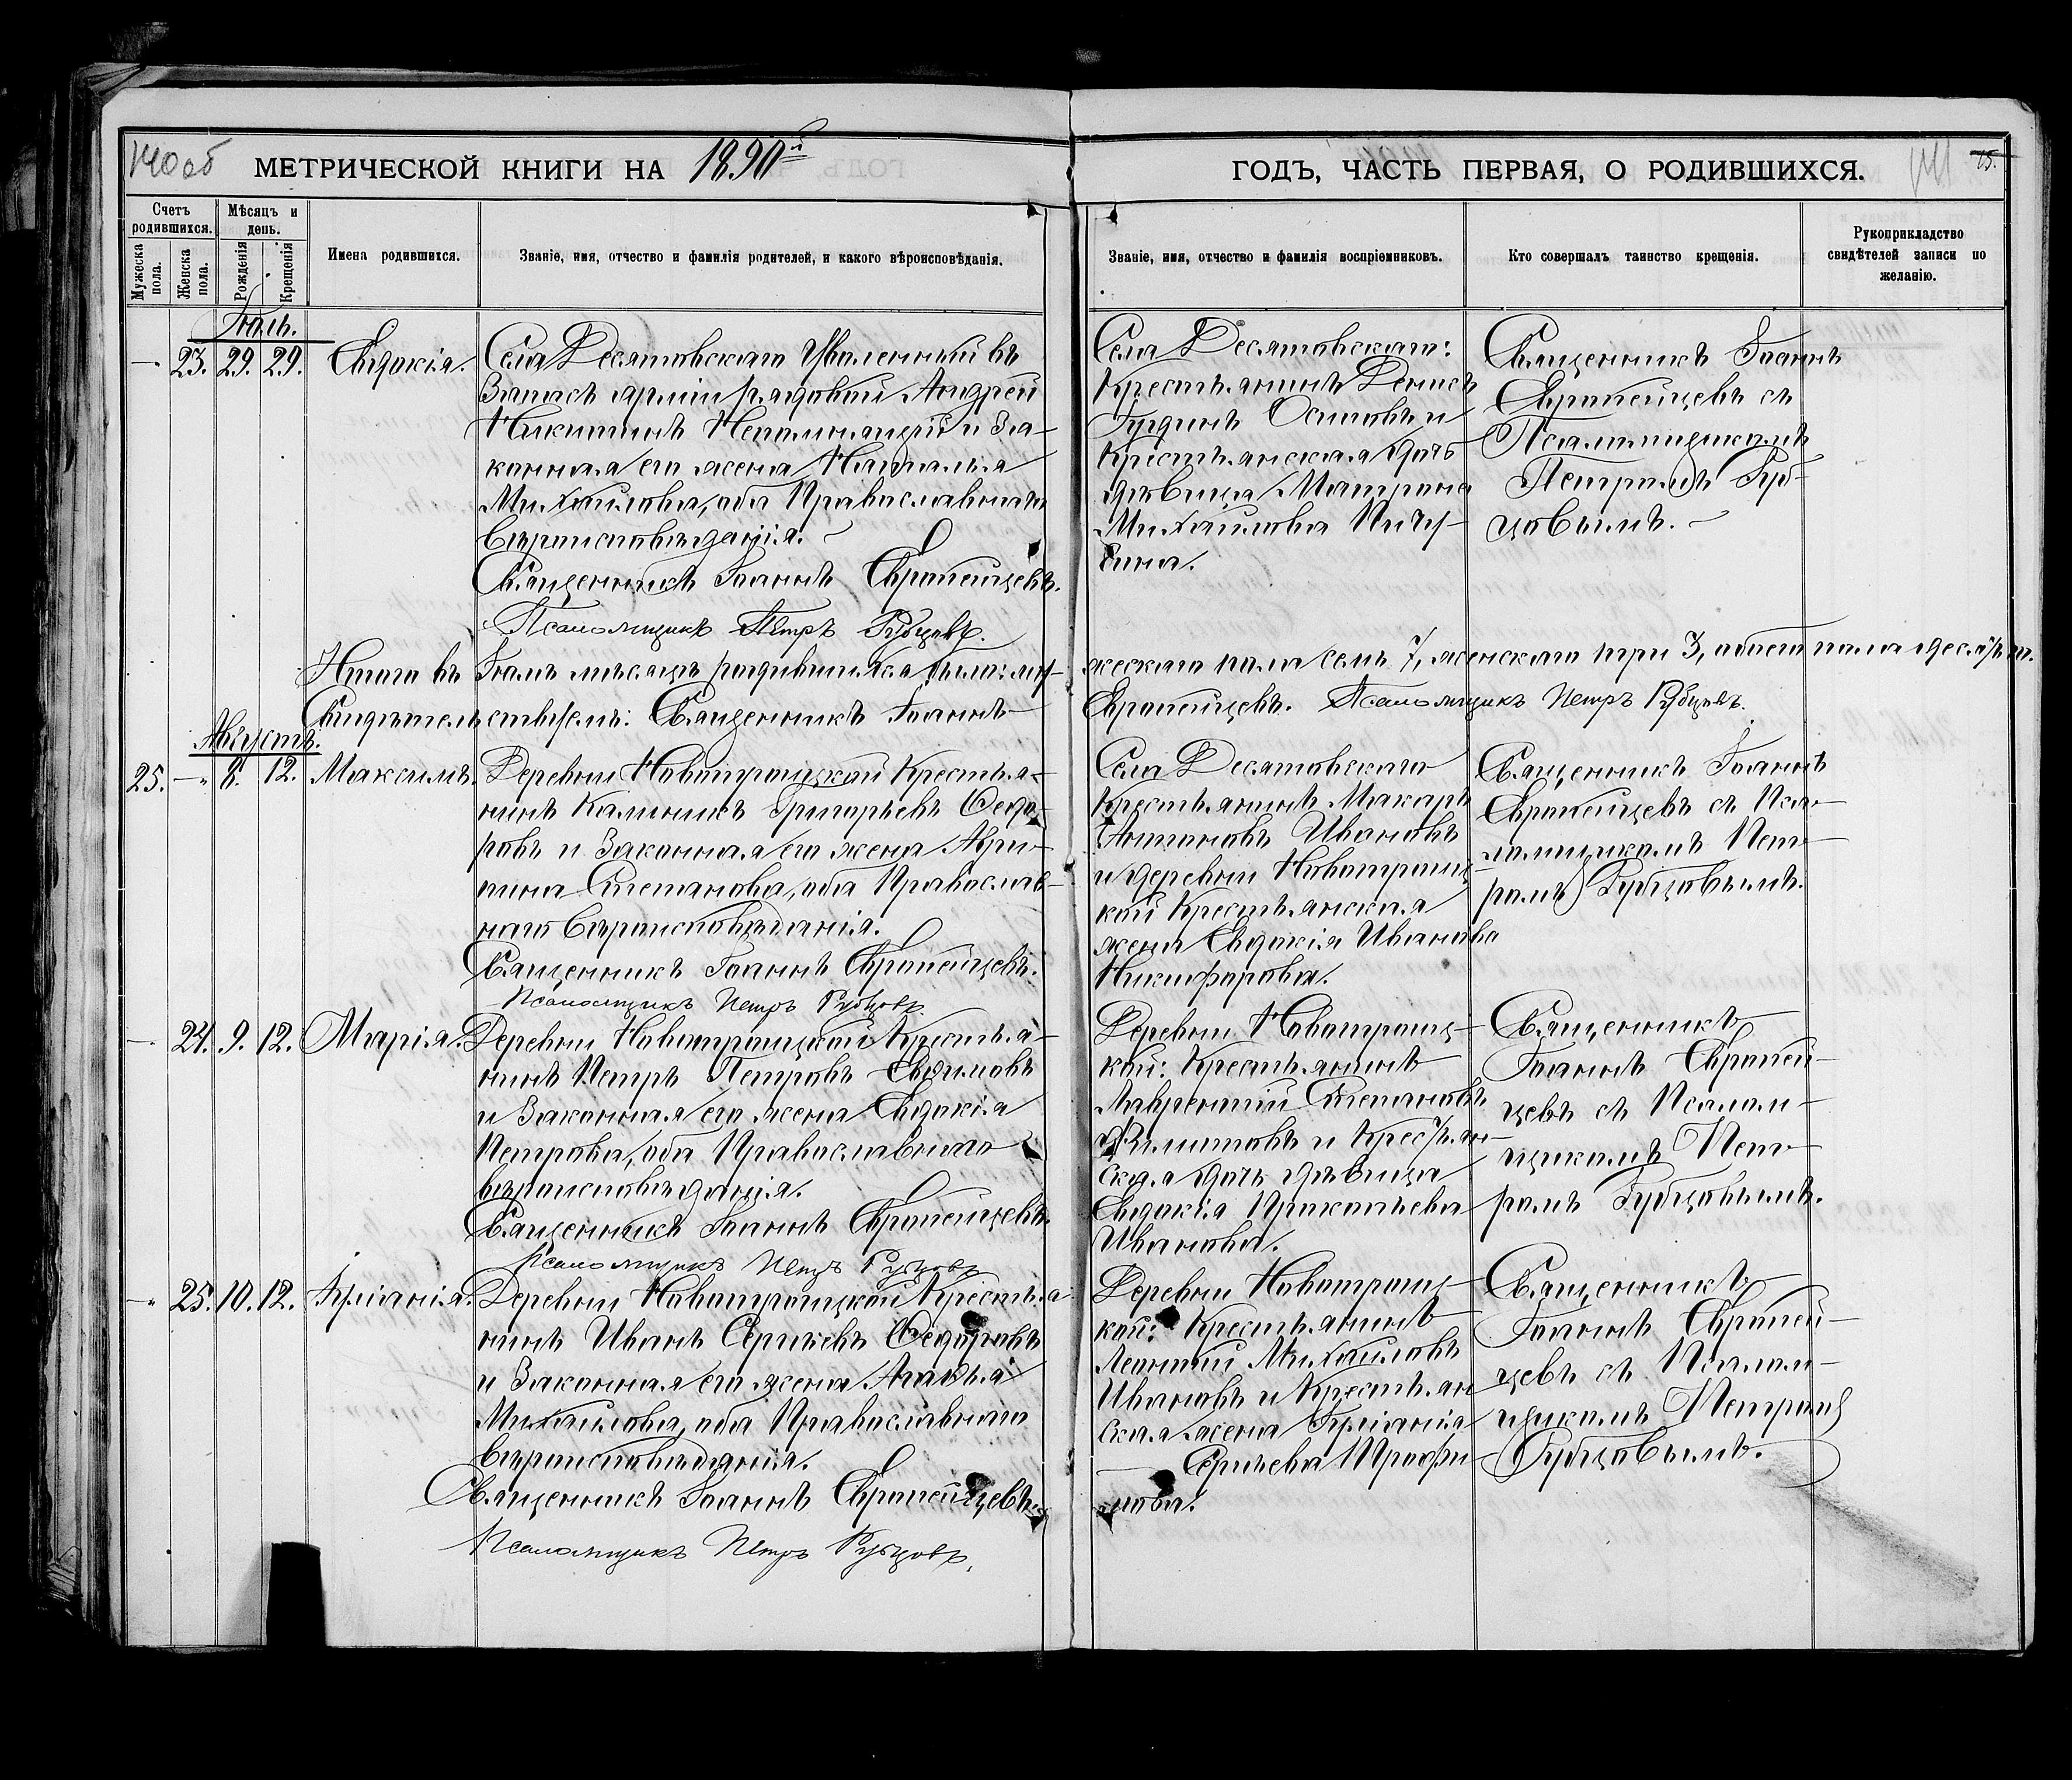 140 об
МЕТРИЧЕСКОЙ КНИГИ НА 1890й
ГОДЪ, ЧАСТЬ ПЕРВАЯ, О РОДИВШИХСЯ.
141
15.
Счетъ родившихся.
Мѣсяцъ и день.
Мужеска пола.
Женска пола.
Рожденія
Крещенія
Имена родившихся.
Званіе, имя, отчество и фамилія родителей, и какого вѣроисповѣданія.
Званіе, имя, отчество и фамилія воспріемниковъ.
Кто совершалъ таинство крещенія.
Рукоприкладство
свидѣтелей записи по
желанію.
Іюль.
— 23. 29. 29. Евдокія.
Села Десятовскаго Уволенный въ
Запасъ арміи рядовой Андрей
Никитинъ Непомнящій и За-
конная его жена Наталья
Михайлова, оба Православнаго
Вѣроисповѣданія.
Священникъ Іоаннъ Европейцевъ.
Псаломщикъ Петръ Рубцовъ.
Села Десятовскаго:
Крестьянинъ Денисъ
Осиповъ и
Крестьянская дочь
дѣвица Матрона
Михайлова Пичу-
гина.
Священникъ Іоаннъ
Европейцевъ съ
Псаломщикомъ
Петромъ Руб-
цовымъ.
Итого въ Іюлѣ мѣсяцѣ родившихся было: му-
жескаго пола семь 7, женскаго три 3, обоего пола десять.
Свидѣтельствуемъ: Священникъ Іоаннъ
Европейцевъ. Псаломщикъ Петръ Рубцовъ.
Августъ.
25. — 8. 12. Максимъ.
Деревни Новотроицкой Крестья-
нинъ Калинникъ Григорьевъ Ѳедо-
ровъ и Законная его жена Агри-
пина Степанова, оба Православ-
наго Вѣроисповѣданія.
Священникъ Іоаннъ Европейцевъ.
Псаломщикъ Петръ Рубцовъ
Села Десятовскаго
Крестьянинъ Макаръ
Антоновъ Ивановъ
и деревни Новотроиц-
кой Крестьянская
жена Евдокія Иванова
Никифорова.
Священникъ Іоаннъ
Европейцевъ съ Пса-
ломщикомъ Пет-
ромъ Рубцовымъ.
— 24. 9. 12. Марія.
Деревни Новотроицкой Крестья-
нинъ Петръ Петровъ Евдимовъ
и Законная его жена Евдокія
Петрова, оба Православнаго
вѣроисповѣданія.
Священникъ Іоаннъ Европейцевъ.
Псаломщикъ Петръ Рубцовъ
Деревни Новотроиц-
кой: Крестьянинъ
Лаврентий Степановъ
и Крестьян-
ская дочь дѣвица
Евдокія Прокопьева
Иванова.
Священникъ
Іоаннъ Европей-
цевъ съ Псалом-
щикомъ Пет-
ромъ Рубцовымъ.
— 25. 10. 12. Іуліанія.
Деревни Новотроицкой Крестья-
нинъ Иванъ Сергѣевъ Ѳедоровъ
и Законная его жена Агаѳья
Михайлова, оба Православнаго
Вѣроисповѣданія.
Священникъ Іоаннъ Европейцевъ
Псаломщикъ Петръ Рубцовъ.
Деревни Новотроиц-
кой: Крестьянинъ
Леонтий Михайловъ
Ивановъ и Крестьян
ская жена Іуліанія
Сергѣева Трофи-
мова.
Священникъ
Іоаннъ Европей-
цевъ съ Псалом-
щикомъ Петромъ
Рубцовымъ.